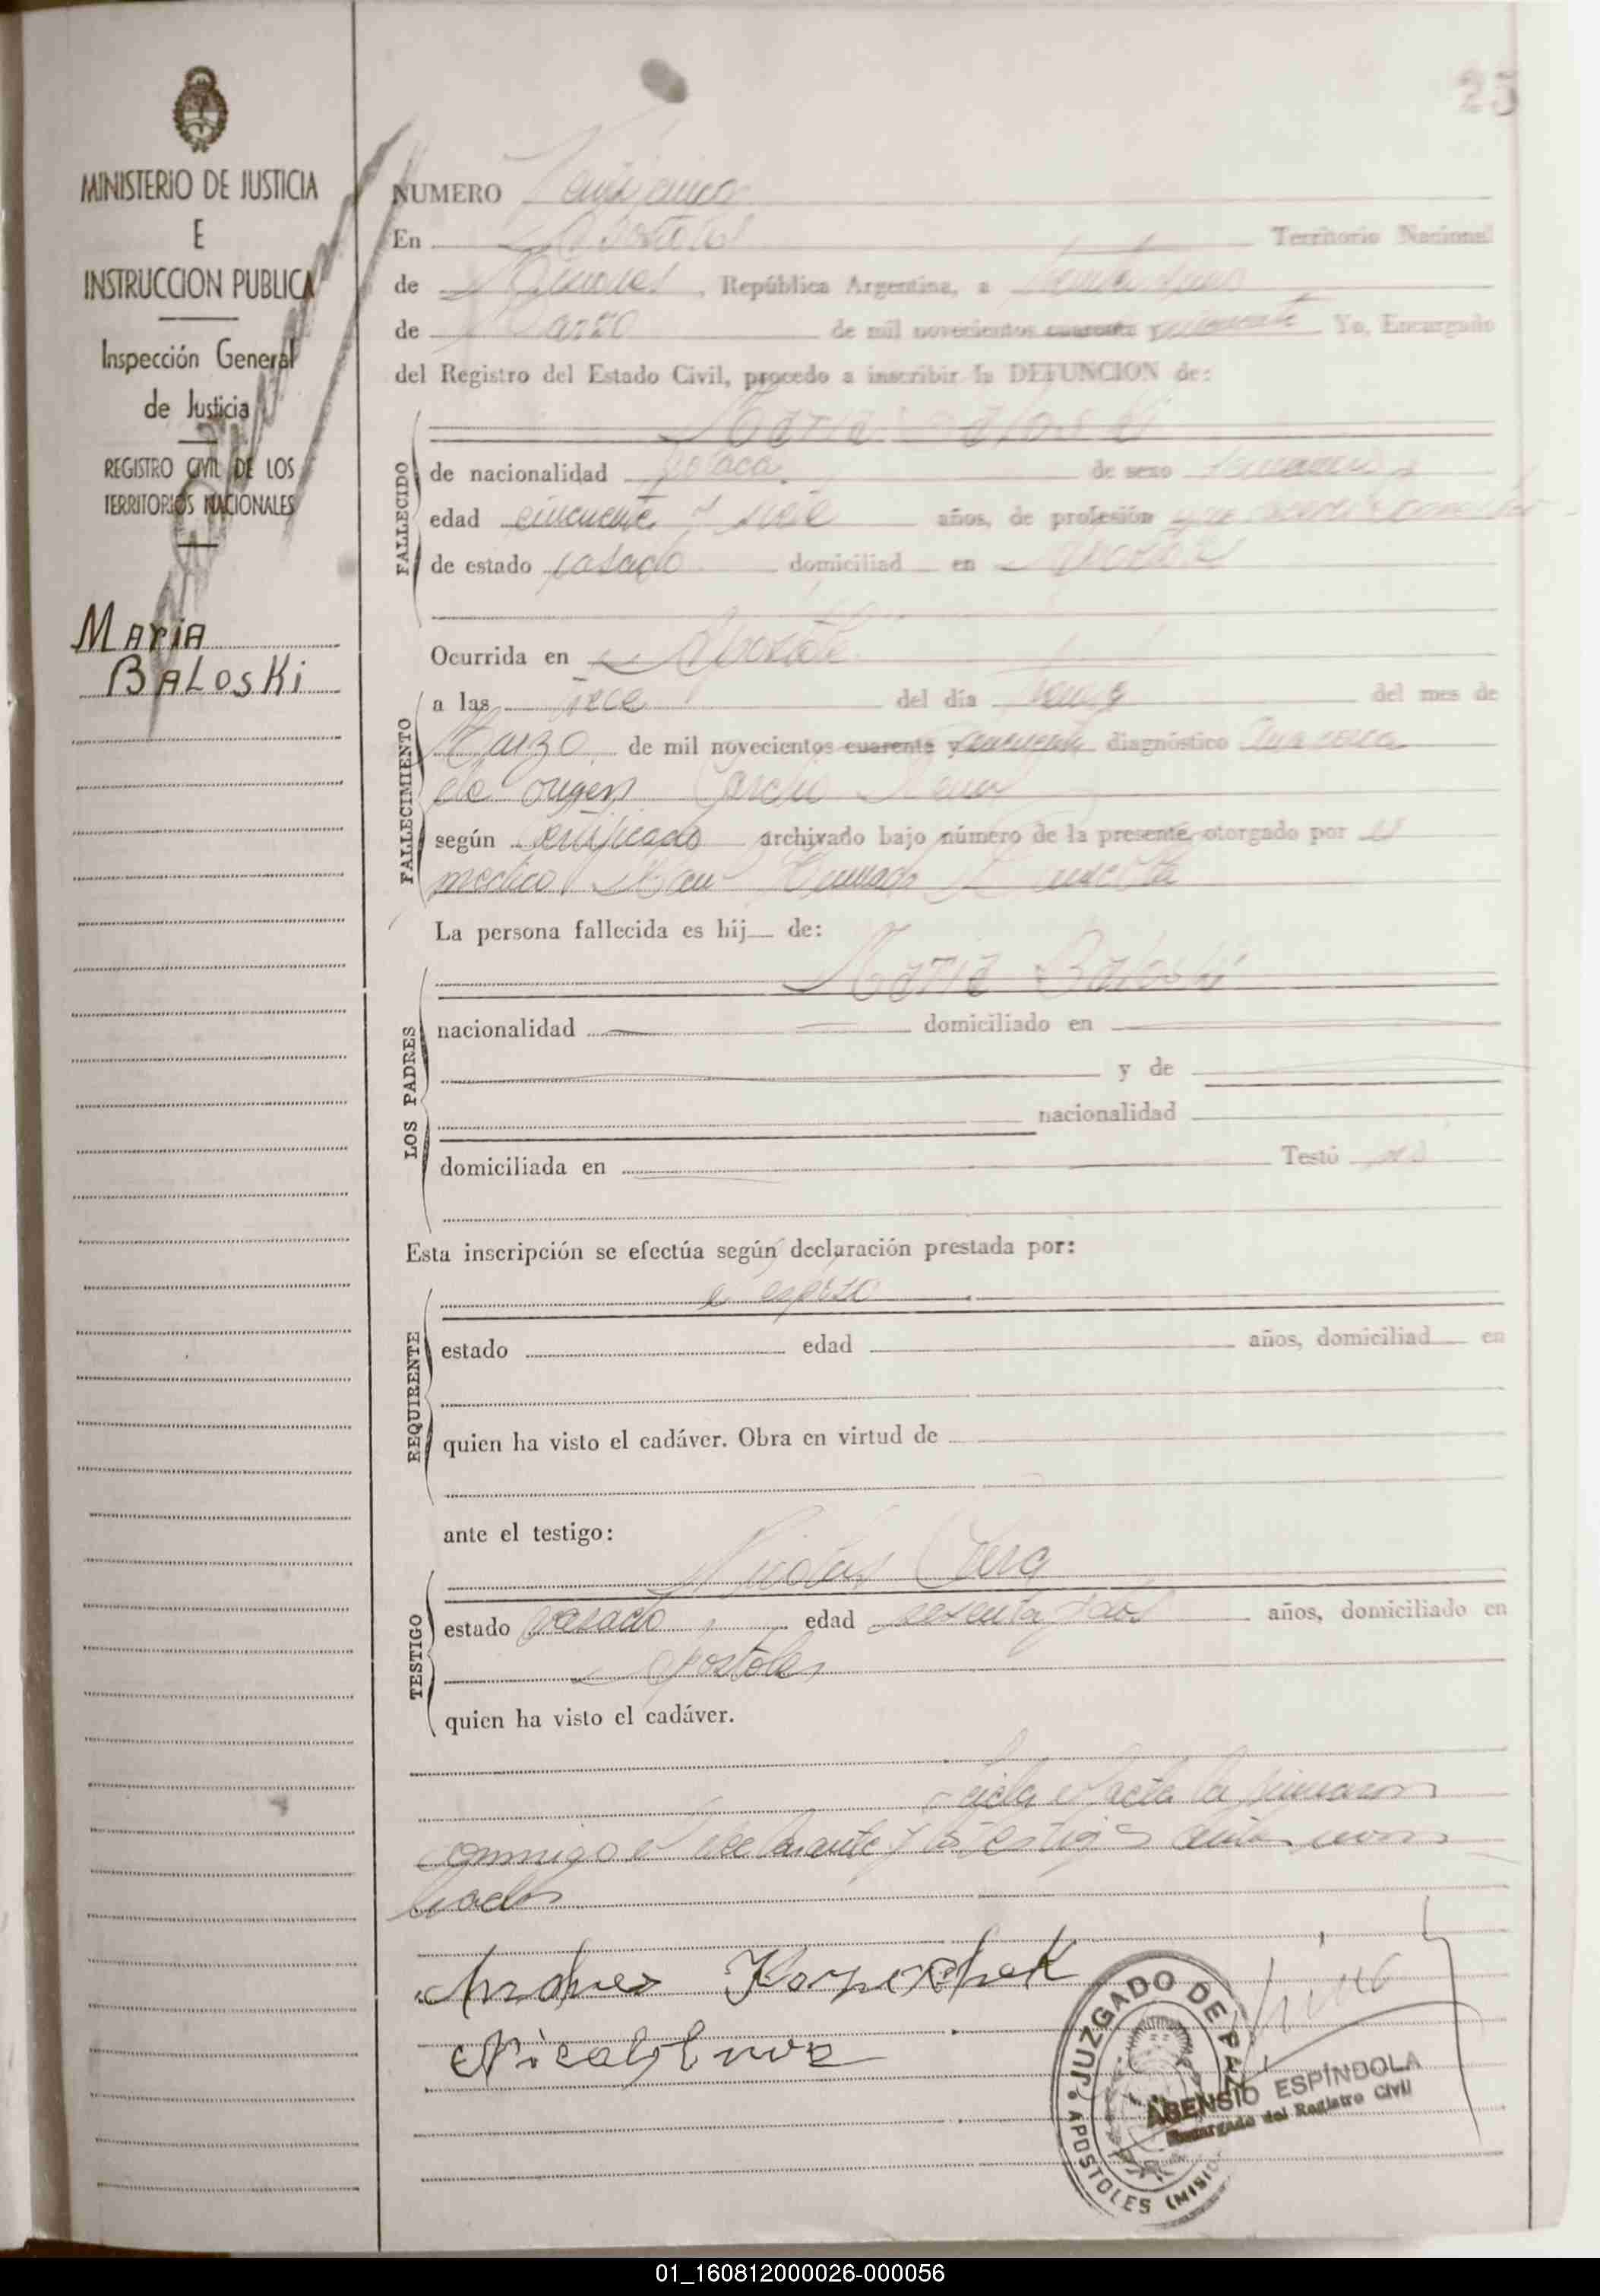 25
MINISTERIO DE JUSTICIA
E
INSTRUCCION PUBLICA
Inspección General
de Justicia
REGISTRO CIVIL DE LOS
TERRITORIOS NACIONALES
MARIA
BALOSKI
NUMERO Veinticinco
En Apostoles Territorio Nacional
de Misiones, República Argentina, a
de Marzo de mil novecientos cuarenta y cincuenta Yo, Encargado
del Registro del Estado Civil, procedo a inscribir la DEFUNCION de:
FALLECIDO
Maria Baloski
de nacionalidad polaca de sexo femenino
edad cincuenta y siete años, de profesión
de estado casado domiciliad en Apostoles
Ocurrida en Apostoles
FALLECIMIENTO
a las trece del día del mes de
Marzo de mil novecientos cuarenta y cincuenta diagnóstico
de origen Cardio Renal
según certificado archivado bajo número de la presente, otorgado por el
medico
La persona fallecida es hij de:
LOS PADRES
Maria Baloski
nacionalidad domiciliado en
y de
nacionalidad
domiciliada en Testó no
Esta inscripción se efectúa según declaración prestada por:
REQUIRENTE
el esposo
estado edad años, domiciliad en
quien ha visto el cadáver. Obra en virtud de
ante el testigo:
TESTIGO
Nicolas
estado casado edad sesenta y dos años, domiciliado en
Apostoles
quien ha visto el cadáver.
Leida el acta la firmaron
conmigo el declarante y el testigo
Andres
JUZGADO DE PAZ
APOSTOLES (MISIO
ASENSIO ESPÍNDOLA
Encargado del Registro Civil
01_160812000026-000056